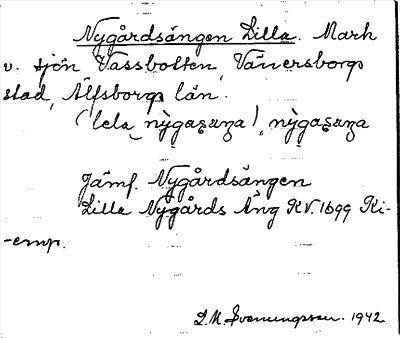 Nygårdsängen Lilla. Mark
v. sjön Vassbotten, Vänersborgs
stad, Älfsborgs län.
(lela) nỳgaṣaŋa), nỳgaṣaŋa
Jämf. Nygårdsängen
Lilla Nygårds Äng KV. 1699 Ki-
-emp.
D.M. Svenungsson. 1942.